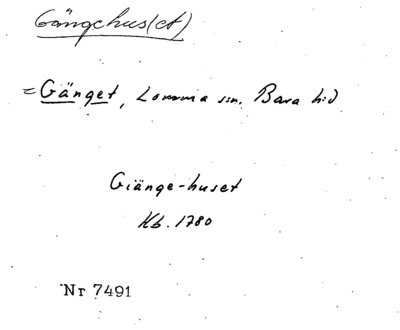 Gängehus(et)
= Gänget, Lomma ssn, Bara hd
Giänge-huset
Kb. 1780
Nr 7491